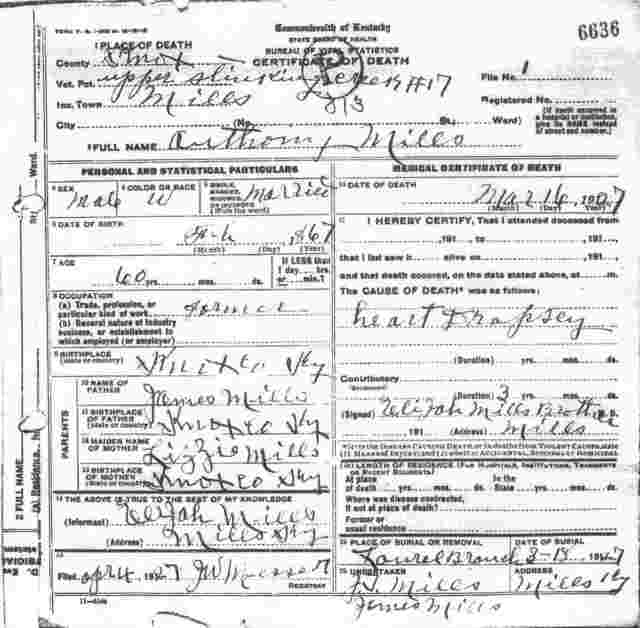 FORM V. S. 1
Commonwealth of Kentucky
STATE BOARD OF HEALTH
BUREAU OF VITAL STATISTICS
CERTIFICATE OF DEATH
6636
1 PLACE OF DEATH
County Knox
Vot. Pct. upper stinking creek #17
File No. 1
Inc. Town Mills
Registered No.
City (No. St.; Ward)
(If death occurred in a hospital or institution, give its NAME instead of street and number.)
2 FULL NAME Anthony Mills
PERSONAL AND STATISTICAL PARTICULARS
3 SEX Male
4 COLOR OR RACE W
5 SINGLE, MARRIED, WIDOWED, OR DIVORCED (Write the word) Married
6 DATE OF BIRTH 1867
(Month) (Day) (Year)
7 AGE 60 yrs. mos. ds.
If LESS than 1 day, hrs. or min.?
8 OCCUPATION
(a) Trade, profession, or particular kind of work farmer
(b) General nature of industry business, or establishment in which employed (or employer)
9 BIRTHPLACE (State or country) Knox co Ky
PARENTS
10 NAME OF FATHER James Mills
11 BIRTHPLACE OF FATHER (State or country) Knox co Ky
12 MAIDEN NAME OF MOTHER Lizzie Mills
13 BIRTHPLACE OF MOTHER (State or country) Knox co Ky
14 THE ABOVE IS TRUE TO THE BEST OF MY KNOWLEDGE
(Informant) Elijah Mills
(Address) Mills Ky
15
Filed apr 4 1927
REGISTRAR
MEDICAL CERTIFICATE OF DEATH
16 DATE OF DEATH Mar 16, 1927
(Month) (Day) (Year)
17 I HEREBY CERTIFY, That I attended deceased from
, 191 , to , 191 ,
that I last saw h alive on , 191 ,
and that death occurred, on the date stated above, at m.
The CAUSE OF DEATH* was as follows:
heart Dropsey
(Duration) yrs. mos. ds.
Contributory
(Secondary)
(Duration) 3 yrs. mos. ds.
(Signed) Elijah Mills Brother M. D.
191 (Address) Mills
18 LENGTH OF RESIDENCE (FOR HOSPITALS, INSTITUTIONS, TRANSIENTS OR RECENT RESIDENTS)
At place of death yrs. mos. ds. In the State yrs. mos. ds.
Where was disease contracted, if not at place of death?
Former or usual residence
19 PLACE OF BURIAL OR REMOVAL Laurel Branch
DATE OF BURIAL 3-18 1927
20 UNDERTAKER J. Mills
ADDRESS Mills Ky
James Mills
2 FULL NAME
(a) Residence. No.
St.; Ward.